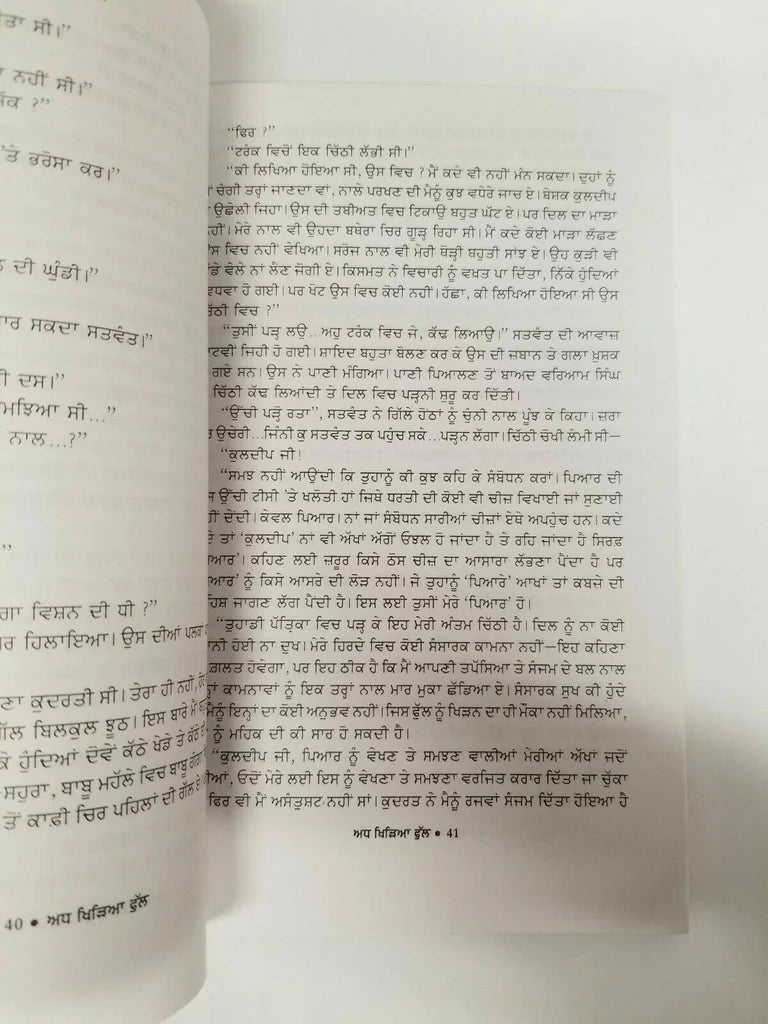 ਸੀ।”
ਨਹੀਂ ਸੀ।”
?”
’ਤੇ ਭਰੋਸਾ ਕਰ।”
ਦੀ ਘੁੰਡੀ।”
ਸਕਦਾ ਸਤਵੰਤ।”
ਦਸ।”
ਸੀ...”
ਨਾਲ...?”
”
ਵਿਸ਼ਨ ਦੀ ਧੀ ?”
ਹਿਲਾਇਆ। ਉਸ ਦੀਆਂ
ਕੁਦਰਤੀ ਸੀ। ਤੇਰਾ ਹੀ ਨਹੀਂ,
ਬਿਲਕੁਲ ਝੂਠ। ਇਸ ਬਾਰੇ ਮੈਂ
ਕੇ ਹੁੰਦਿਆਂ ਦੋਵੇਂ ਕੱਠੇ ਖੇਡੇ ਤੇ ਕੱਠੇ
ਸਹੁਰਾ, ਬਾਬੂ ਮਹੱਲੇ ਵਿਚ ਬਾਬੂ
ਤੋਂ ਕਾਫ਼ੀ ਚਿਰ ਪਹਿਲਾਂ ਦੀ ਗੱਲ ਏ
40 • ਅਧ ਖਿੜਿਆ ਫੁੱਲ
“ਫਿਰ ?”
“ਟਰੰਕ ਵਿਚੋਂ ਇਕ ਚਿੱਠੀ ਲੱਭੀ ਸੀ।”
“ਕੀ ਲਿਖਿਆ ਹੋਇਆ ਸੀ, ਉਸ ਵਿਚ ? ਮੈਂ ਕਦੇ ਵੀ ਨਹੀਂ ਮੰਨ ਸਕਦਾ। ਦੁਹਾਂ ਨੂੰ
ਚੰਗੀ ਤਰ੍ਹਾਂ ਜਾਣਦਾ ਵਾਂ, ਨਾਲੇ ਪਰਖਣ ਦੀ ਮੈਨੂੰ ਕੁਝ ਵਧੇਰੇ ਜਾਚ ਏ। ਬੇਸ਼ਕ ਕੁਲਦੀਪ
ਉਛੇਲੀ ਜਿਹਾ। ਉਸ ਦੀ ਤਬੀਅਤ ਵਿਚ ਟਿਕਾਉ ਬਹੁਤ ਘੱਟ ਏ। ਪਰ ਦਿਲ ਦਾ ਮਾੜਾ
ਮੇਰੇ ਨਾਲ ਵੀ ਉਹਦਾ ਬਥੇਰਾ ਚਿਰ ਗੂੜ੍ਹ ਰਿਹਾ ਸੀ। ਮੈਂ ਕਦੇ ਕੋਈ ਮਾੜਾ ਲੱਛਣ
ਵਿਚ ਨਹੀਂ ਵੇਖਿਆ। ਸਰੋਜ ਨਾਲ ਵੀ ਮੇਰੀ ਥੋੜ੍ਹੀ ਬਹੁਤੀ ਸਾਂਝ ਏ। ਉਹ ਕੁੜੀ ਵੀ
ਵੇਲੇ ਨਾਂ ਲੈਣ ਜੋਗੀ ਏ। ਕਿਸਮਤ ਨੇ ਵਿਚਾਰੀ ਨੂੰ ਵਖਤ ਪਾ ਦਿੱਤਾ, ਨਿੱਕੇ ਹੁੰਦਿਆਂ
ਹੋ ਗਈ। ਪਰ ਖੋਟ ਉਸ ਵਿਚ ਕੋਈ ਨਹੀਂ। ਹੱਛਾ, ਕੀ ਲਿਖਿਆ ਹੋਇਆ ਸੀ ਉਸ
ਵਿਚ ?”
“ਤੁਸੀਂ ਪੜ੍ਹ ਲਉ...ਅਹੁ ਟਰੰਕ ਵਿਚ ਜੇ, ਕੱਢ ਲਿਆਉ।” ਸਤਵੰਤ ਦੀ ਆਵਾਜ਼
ਜਿਹੀ ਹੋ ਗਈ। ਸ਼ਾਇਦ ਬਹੁਤਾ ਬੋਲਣ ਕਰ ਕੇ ਉਸ ਦੀ ਜ਼ਬਾਨ ਤੇ ਗਲਾ ਖ਼ੁਸ਼ਕ
ਗਏ ਸਨ। ਉਸ ਨੇ ਪਾਣੀ ਮੰਗਿਆ। ਪਾਣੀ ਪਿਆਲਣ ਤੋਂ ਬਾਅਦ ਵਰਿਆਮ ਸਿੰਘ
ਚਿੱਠੀ ਕੱਢ ਲਿਆਂਦੀ ਤੇ ਦਿਲ ਵਿਚ ਪੜ੍ਹਨੀ ਸ਼ੁਰੂ ਕਰ ਦਿੱਤੀ।
“ਉੱਚੀ ਪੜ੍ਹੋ ਰਤਾ”, ਸਤਵੰਤ ਨੇ ਗਿੱਲੇ ਹੋਠਾਂ ਨੂੰ ਚੁੰਨੀ ਨਾਲ ਪੂੰਝ ਕੇ ਕਿਹਾ। ਜ਼ਰਾ
ਉਚੇਰੀ...ਜਿੰਨੀ ਕੁ ਸਤਵੰਤ ਤਕ ਪਹੁੰਚ ਸਕੇ...ਪੜ੍ਹਨ ਲੱਗਾ। ਚਿੱਠੀ ਚੋਖੀ ਲੰਮੀ ਸੀ—
“ਕੁਲਦੀਪ ਜੀ!
“ਸਮਝ ਨਹੀਂ ਆਉਂਦੀ ਕਿ ਤੁਹਾਨੂੰ ਕੀ ਕੁਝ ਕਹਿ ਕੇ ਸੰਬੋਧਨ ਕਰਾਂ। ਪਿਆਰ ਦੀ
ਉੱਚੀ ਟੀਸੀ ’ਤੇ ਖਲੋਤੀ ਹਾਂ ਜਿਥੇ ਧਰਤੀ ਦੀ ਕੋਈ ਵੀ ਚੀਜ਼ ਵਿਖਾਈ ਜਾਂ ਸੁਣਾਈ
ਦੇਂਦੀ। ਕੇਵਲ ਪਿਆਰ। ਨਾਂ ਜਾਂ ਸੰਬੋਧਨ ਸਾਰੀਆਂ ਚੀਜ਼ਾਂ ਏਥੇ ਅਪਹੁੰਚ ਹਨ। ਕਦੇ
ਤਾਂ ‘ਕੁਲਦੀਪ’ ਨਾਂ ਵੀ ਅੱਖਾਂ ਅੱਗੋਂ ਓਝਲ ਹੋ ਜਾਂਦਾ ਹੈ ਤੇ ਰਹਿ ਜਾਂਦਾ ਹੈ ਸਿਰਫ਼
ਕਹਿਣ ਲਈ ਜ਼ਰੂਰ ਕਿਸੇ ਠੋਸ ਚੀਜ਼ ਦਾ ਆਸਾਰਾ ਲੱਭਣਾ ਪੈਂਦਾ ਹੈ ਪਰ
ਨੂੰ ਕਿਸੇ ਆਸਰੇ ਦੀ ਲੋੜ ਨਹੀਂ। ਜੇ ਤੁਹਾਨੂੰ ‘ਪਿਆਰੇ’ ਆਖਾਂ ਤਾਂ ਕਬਜ਼ੇ ਦੀ
ਜਾਗਣ ਲੱਗ ਪੈਂਦੀ ਹੈ। ਇਸ ਲਈ ਤੁਸੀਂ ਮੇਰੇ ‘ਪਿਆਰ’ ਹੋ।
“ਤੁਹਾਡੀ ਪੱਤ੍ਰਿਕਾ ਵਿਚ ਪੜ੍ਹ ਕੇ ਇਹ ਮੇਰੀ ਅੰਤਮ ਚਿੱਠੀ ਹੈ। ਦਿਲ ਨੂੰ ਨਾ ਕੋਈ
ਹੋਈ ਨਾ ਦੁਖ। ਮੇਰੇ ਹਿਰਦੇ ਵਿਚ ਕੋਈ ਸੰਸਾਰਕ ਕਾਮਨਾ ਨਹੀਂ—ਇਹ ਕਹਿਣਾ
ਹੋਵੇਗਾ, ਪਰ ਇਹ ਠੀਕ ਹੈ ਕਿ ਮੈਂ ਆਪਣੀ ਤਪੱਸਿਆ ਤੇ ਸੰਜਮ ਦੇ ਬਲ ਨਾਲ
ਕਾਮਨਾਵਾਂ ਨੂੰ ਇਕ ਤਰ੍ਹਾਂ ਨਾਲ ਮਾਰ ਮੁਕਾ ਛੱਡਿਆ ਏ। ਸੰਸਾਰਕ ਸੁਖ ਕੀ ਹੁੰਦੇ
ਮੈਨੂੰ ਇਨ੍ਹਾਂ ਦਾ ਕੋਈ ਅਨੁਭਵ ਨਹੀਂ। ਜਿਸ ਫੁੱਲ ਨੂੰ ਖਿੜਨ ਦਾ ਹੀ ਮੌਕਾ ਨਹੀਂ ਮਿਲਿਆ,
ਨੂੰ ਮਹਿਕ ਦੀ ਕੀ ਸਾਰ ਹੋ ਸਕਦੀ ਹੈ।
“ਕੁਲਦੀਪ ਜੀ, ਪਿਆਰ ਨੂੰ ਵੇਖਣ ਤੇ ਸਮਝਣ ਵਾਲੀਆਂ ਮੇਰੀਆਂ ਅੱਖਾਂ ਜਦੋਂ
ਓਦੋਂ ਮੇਰੇ ਲਈ ਇਸ ਨੂੰ ਵੇਖਣਾ ਤੇ ਸਮਝਣਾ ਵਰਜਿਤ ਕਰਾਰ ਦਿੱਤਾ ਜਾ ਚੁੱਕਾ
ਫਿਰ ਵੀ ਮੈਂ ਅਸੰਤੁਸ਼ਟ ਨਹੀਂ ਸਾਂ। ਕੁਦਰਤ ਨੇ ਮੈਨੂੰ ਰਜਵਾਂ ਸੰਜਮ ਦਿੱਤਾ ਹੋਇਆ ਹੈ
ਅਧ ਖਿੜਿਆ ਫੁੱਲ • 41